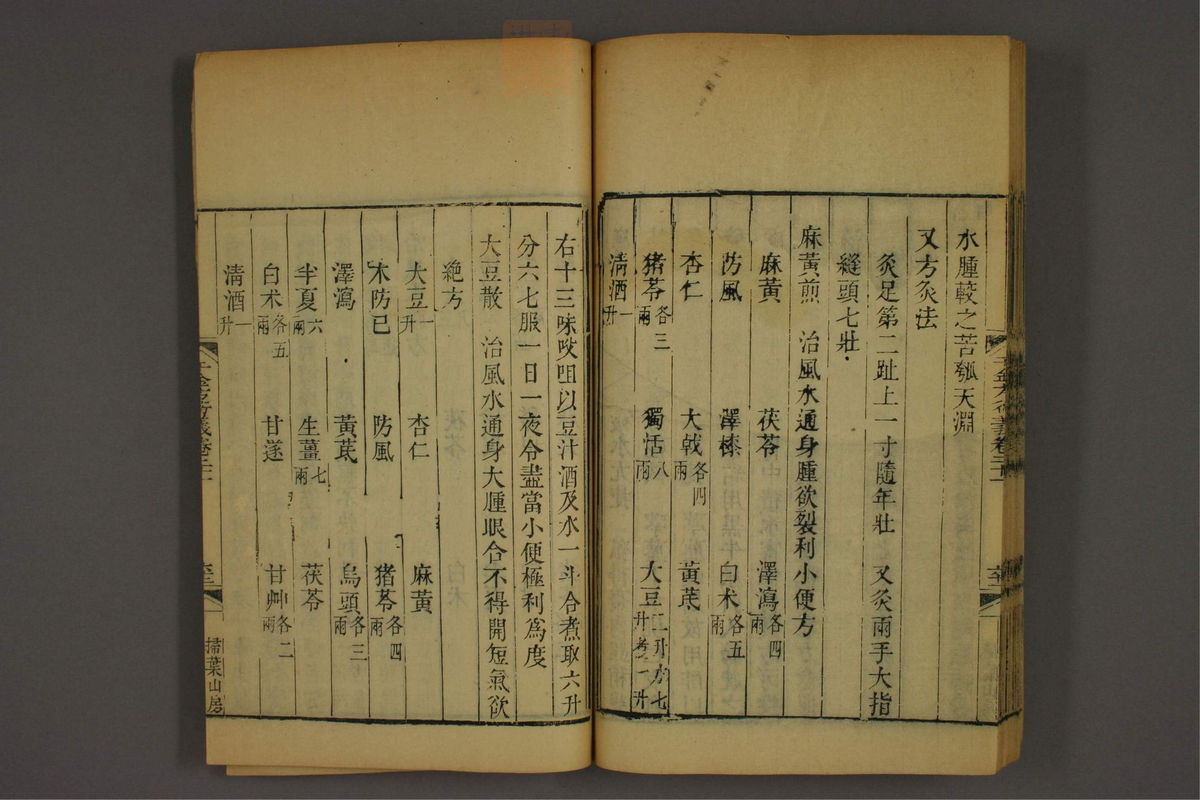 水腫較之苦瓠天淵
又方灸法
灸足第二趾上一寸隨年壯 又灸兩手大指
縫頭七壯
麻黃煎 治風水通身腫欲裂利小便方
麻黃 茯苓 澤瀉各四兩
防風 澤漆 白术各五兩
杏仁 大戟各四兩 黃芪
猪苓各三兩 獨活八兩 大豆二升水七升煮一升
清酒一升
右十三味㕮咀以豆汁酒及水一斗合煮取六升
分六七服一日一夜令盡當小便極利爲度
大豆散 治風水通身大腫眼合不得開短氣欲
絶方
大豆一升 杏仁 麻黃
木防已 防風 猪苓各四兩
澤瀉 黃芪 烏頭各三兩
半夏六兩 生薑七兩 茯苓
白术各五兩 甘遂 甘艸各二兩
清酒一升
掃葉山房